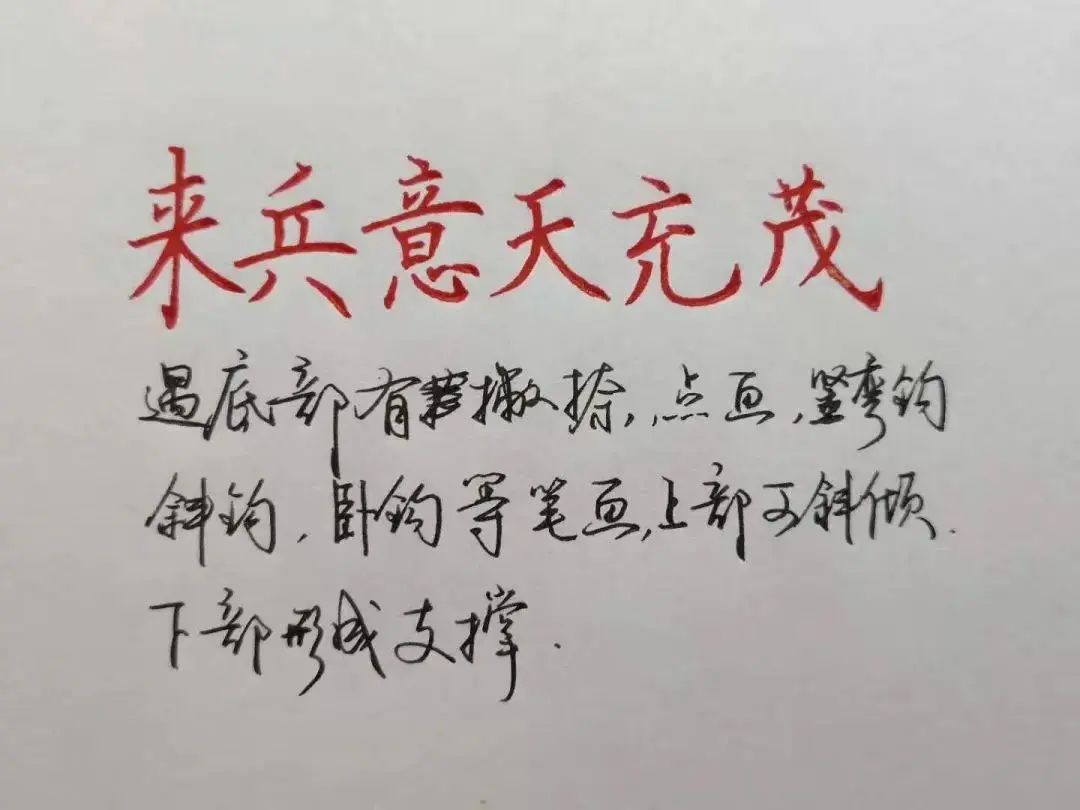 来兵意天充茂
遇底部有撇捺,点画,竖弯钩
斜钩,卧钩等笔画,上部可斜倾.
下部形成支撑.